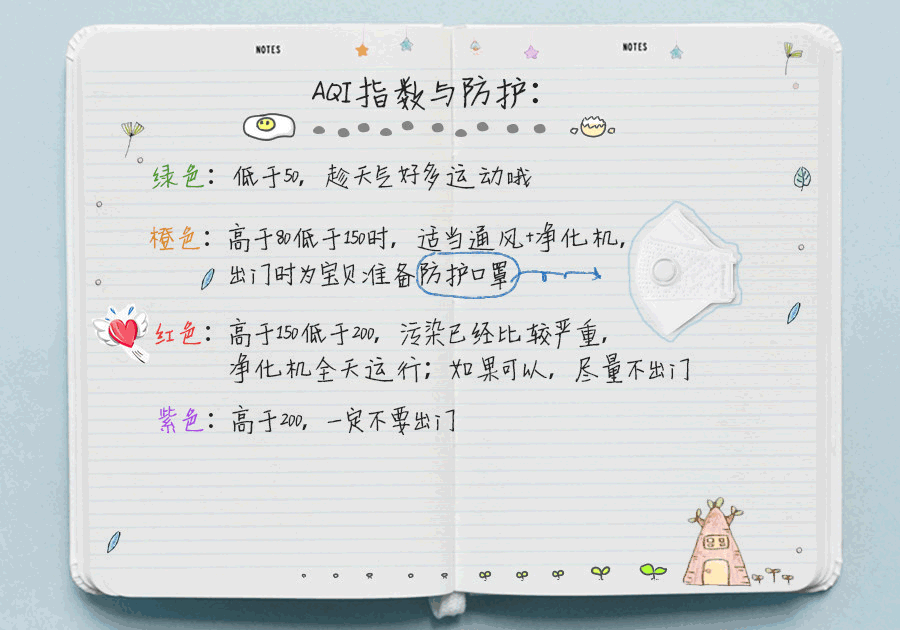 NOTES NOTES
AQI指数与防护：
绿色：低于50，趁天气好多运动哦
橙色：高于80低于150时，适当通风+净化机，
出门时为宝贝准备防护口罩
红色：高于150低于200，污染已经比较严重，
净化机全天运行；如果可以，尽量不出门
紫色：高于200，一定不要出门